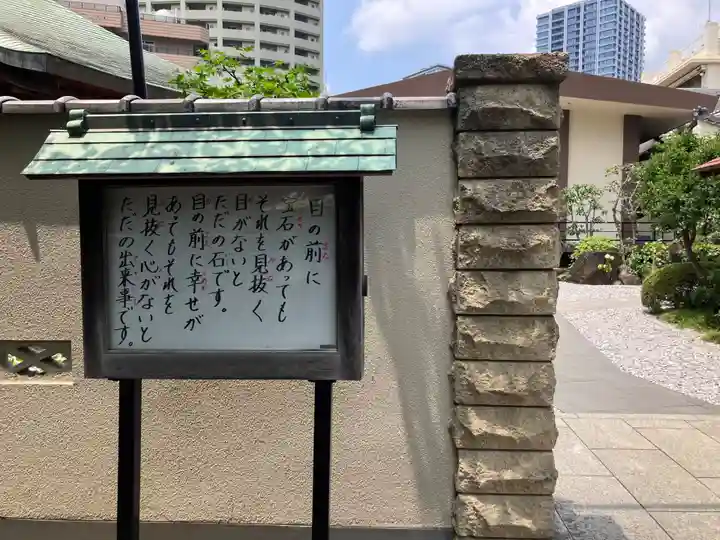 目の前に
宝石があっても
それを見抜く
目がないと
ただの石です。
目の前に幸せが
あってもそれを
見抜く心がないと
ただの出来事です。